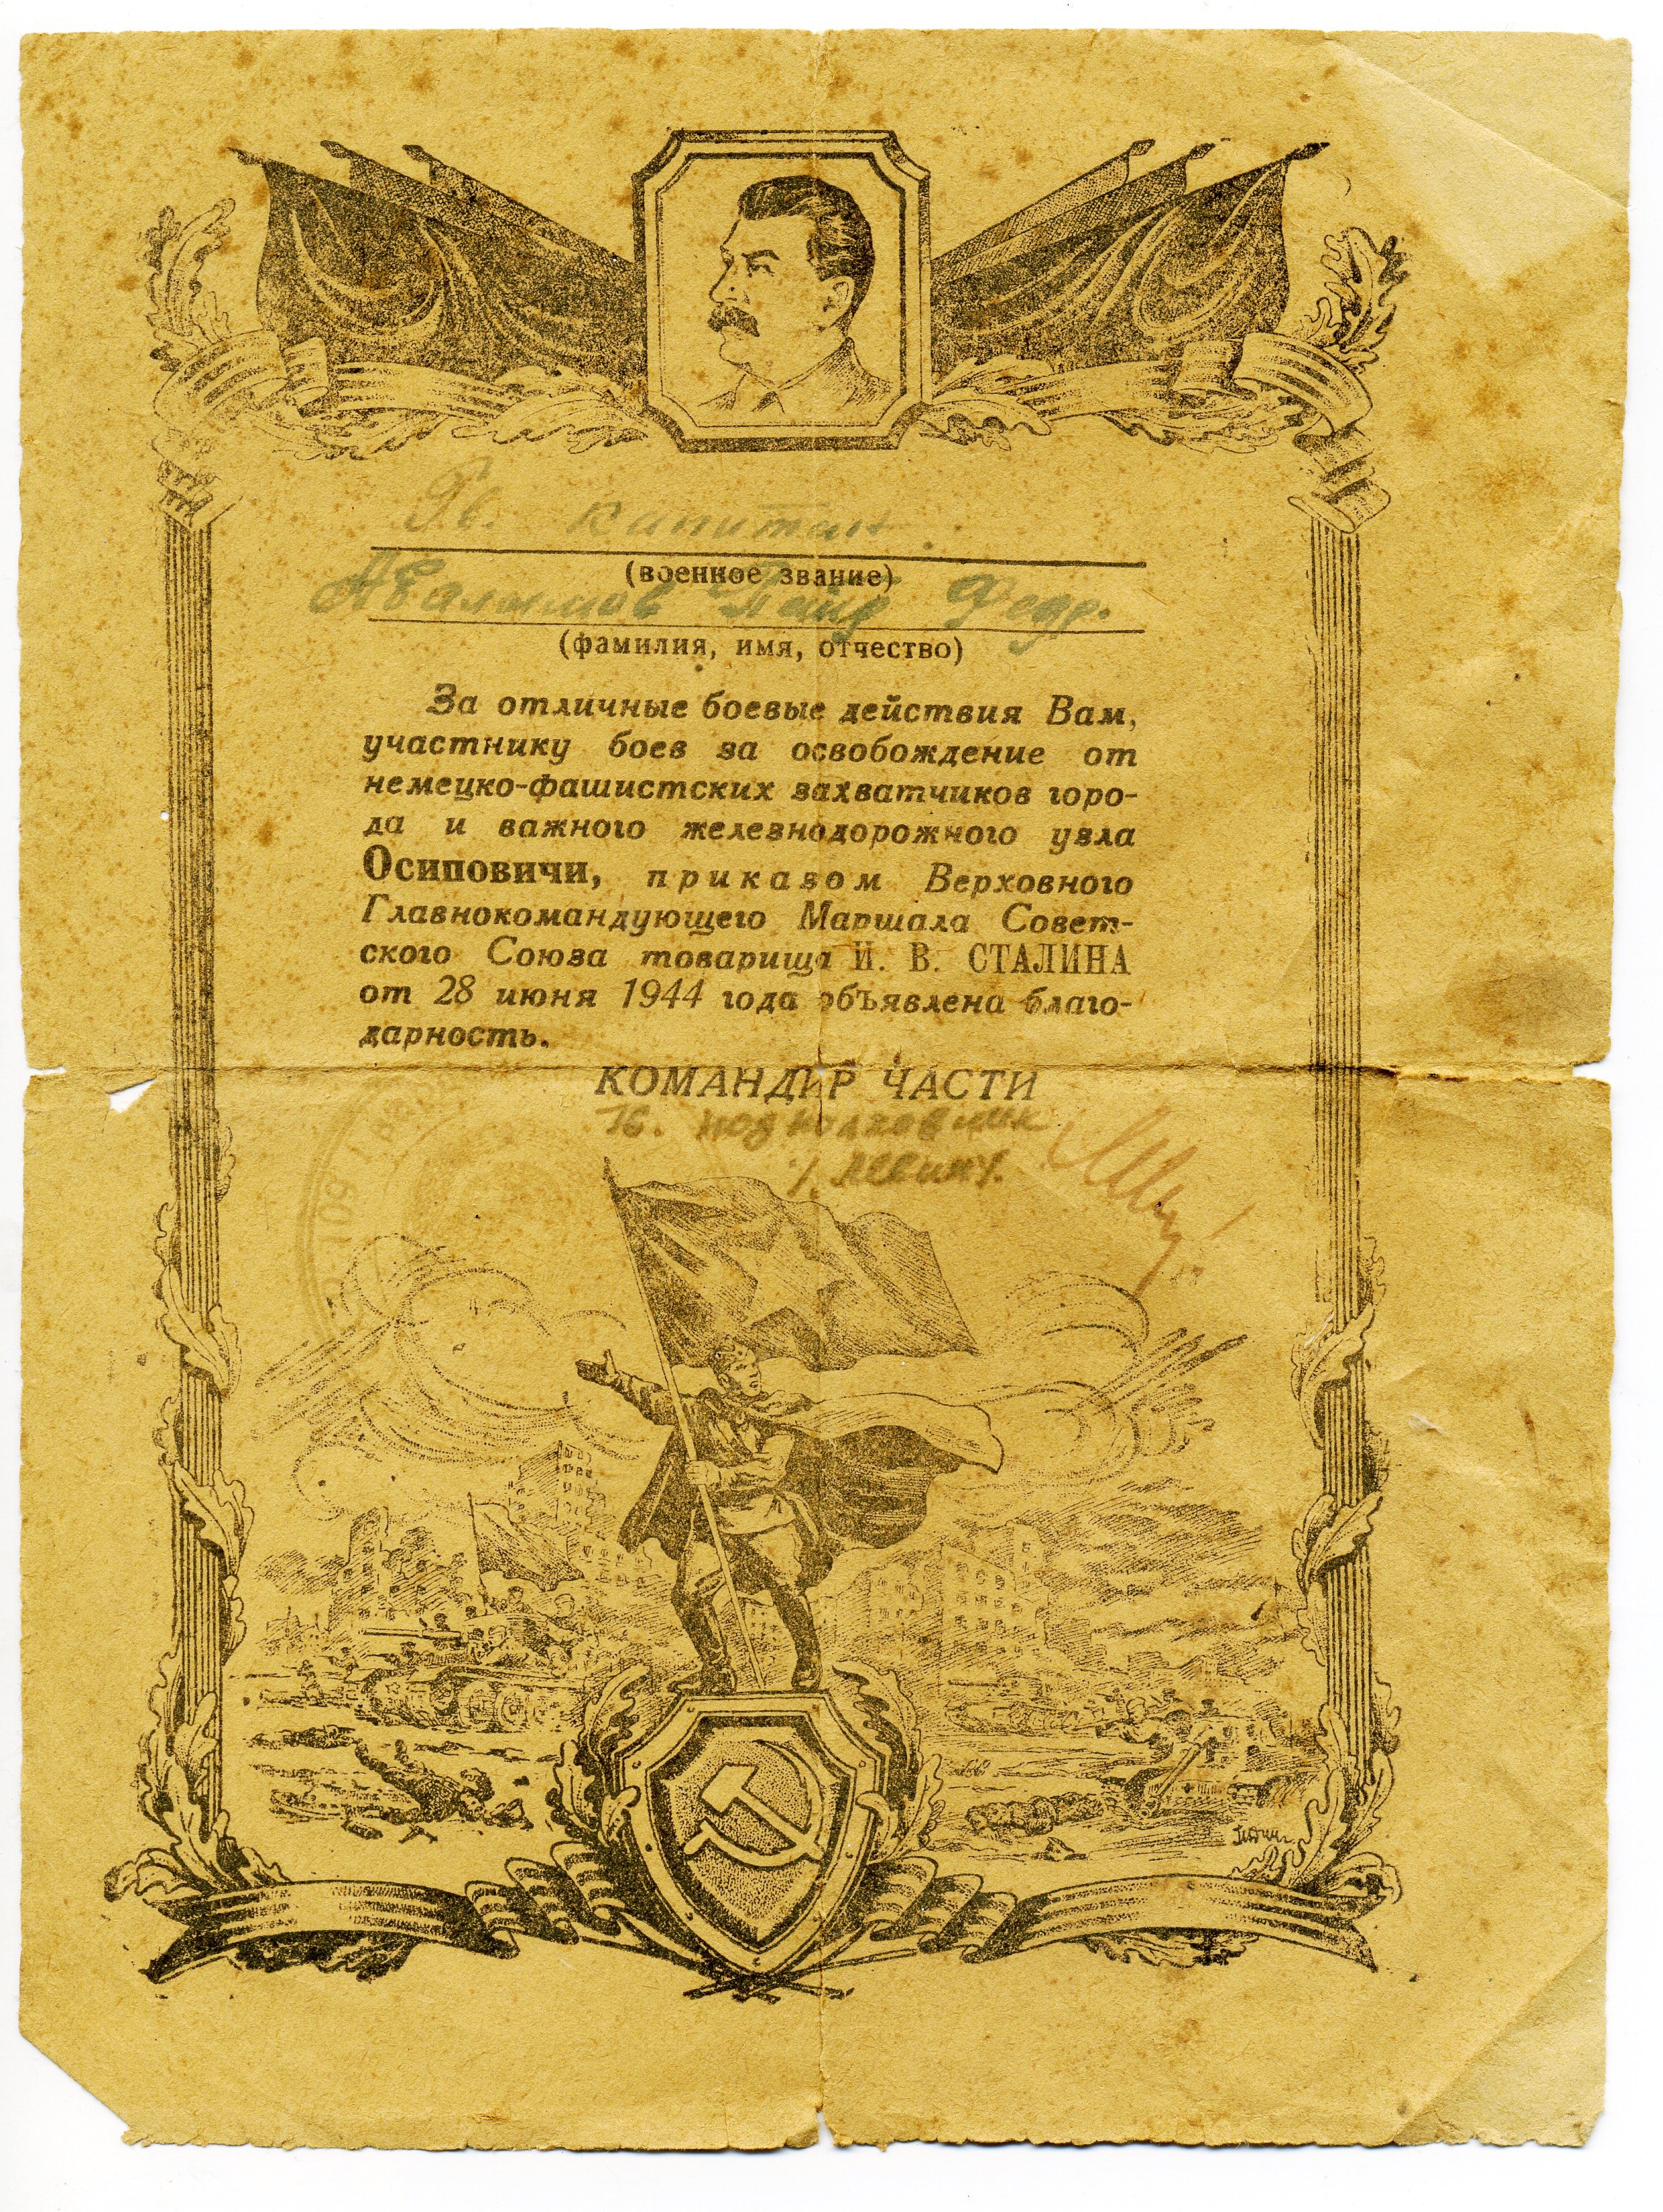 Гв. капитан
(военное звание)
Петр Федр.
(фамилия, имя, отчество)
За отличные боевые действия Вам,
участнику боев за освобождение от
немецко-фашистских захватчиков горо-
да и важного железнодорожного узла
Осиповичи, приказом Верховного
Главнокомандующего Маршала Совет-
ского Союза товарища И. В. СТАЛИНА
от 28 июня 1944 года объявлена благо-
дарность.
КОМАНДИР ЧАСТИ
подполковник